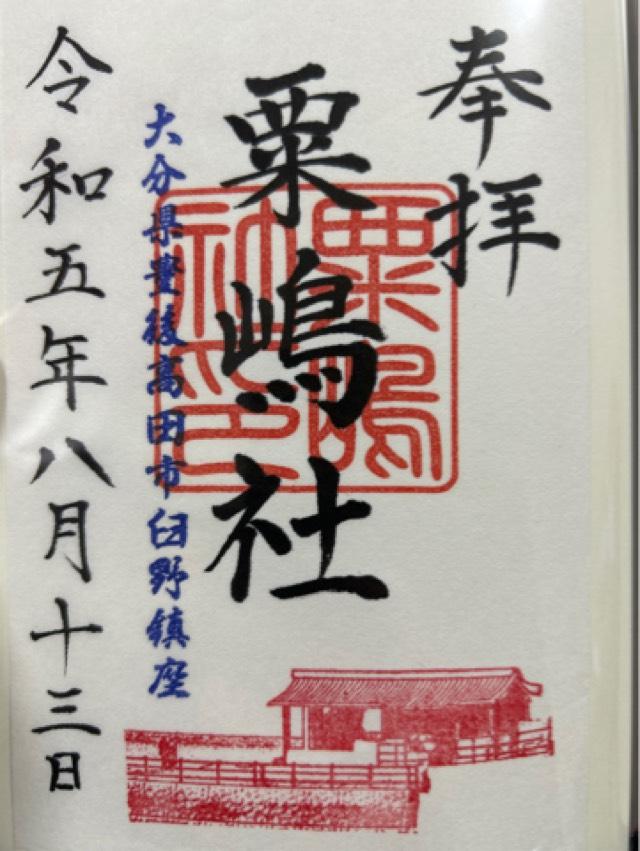 奉拝
粟嶋社
粟嶋社印
大分県豊後高田市臼野鎮座
令和五年八月十三日